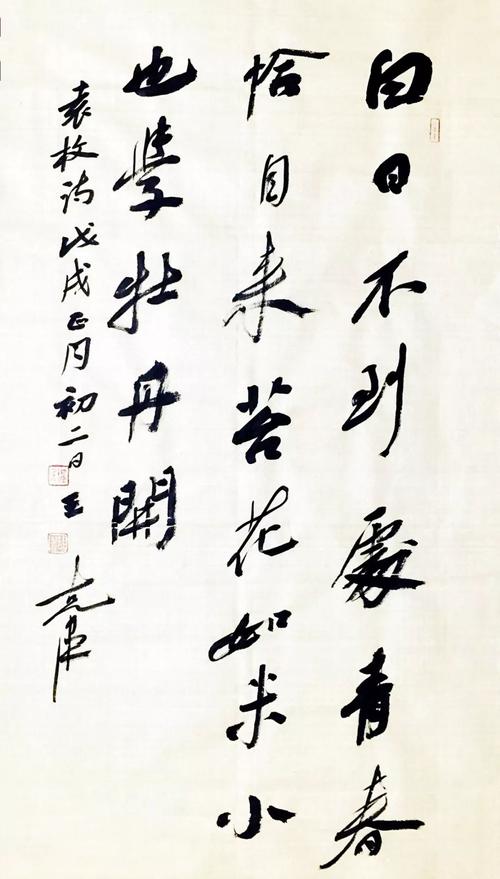 白日不到處青春
恰自来苔花如米小
也學牡丹開
袁枚诗戊戌正月初二日王